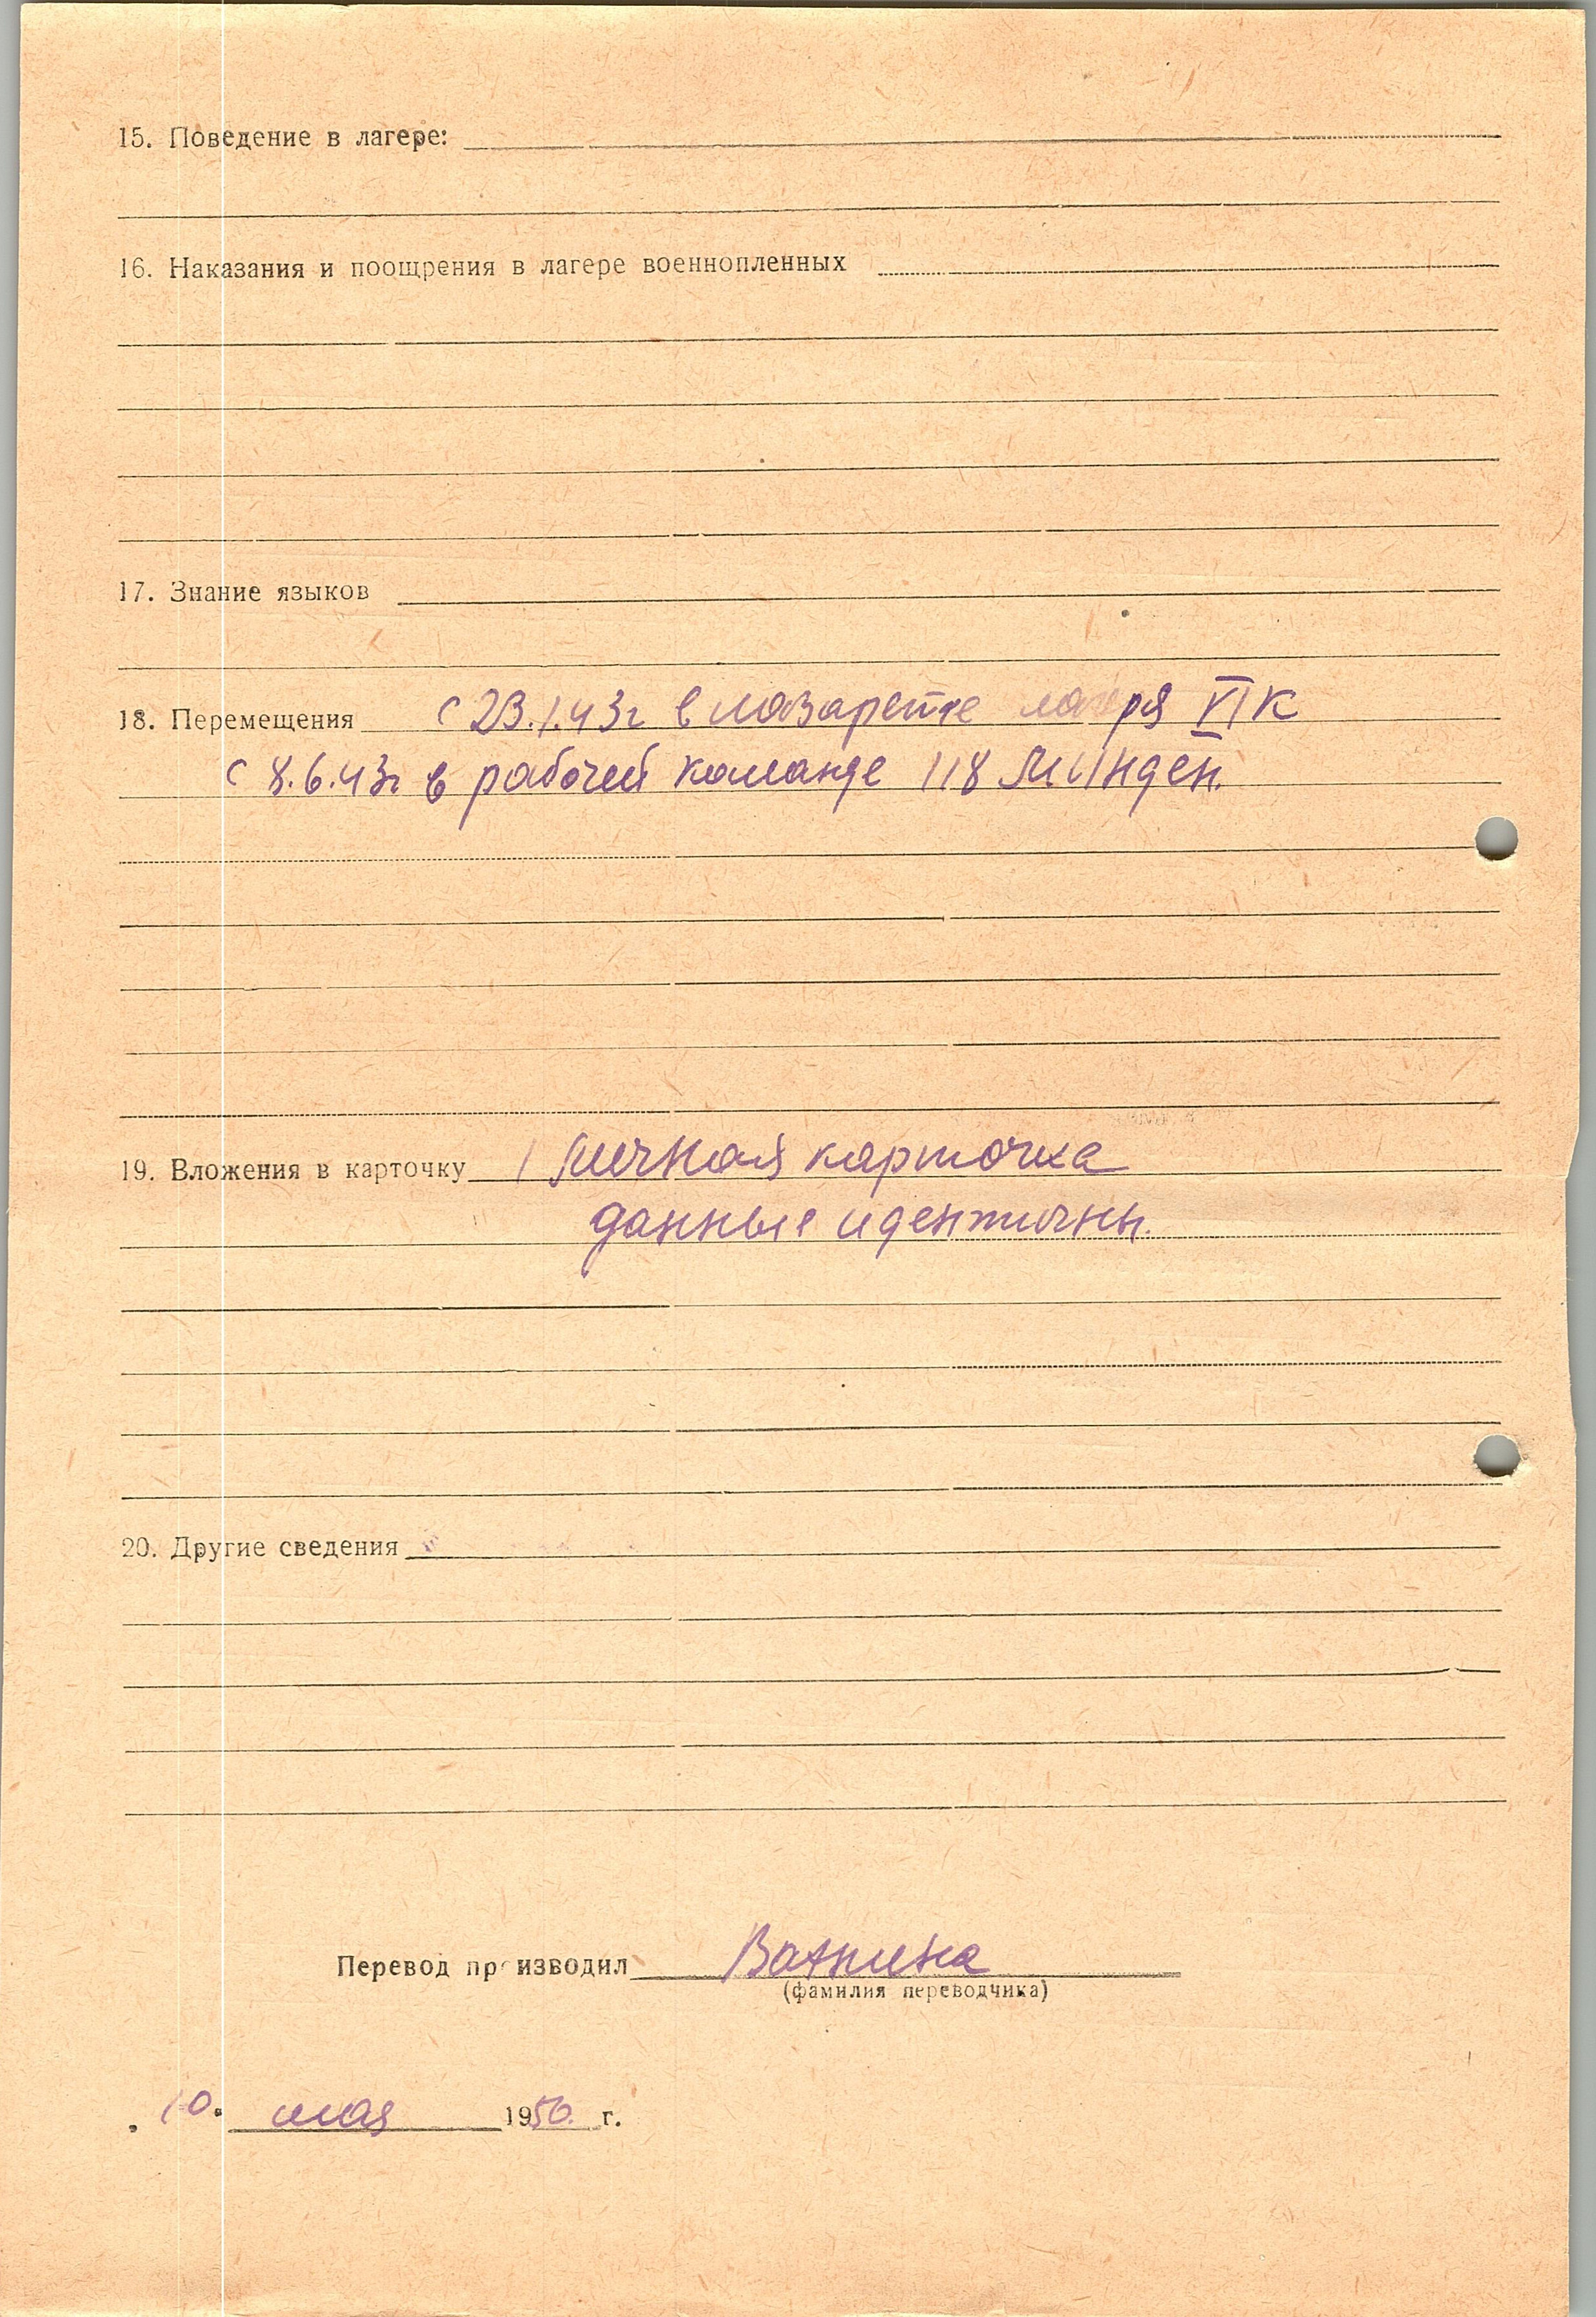 15. Поведение в лагере:
16. Наказания и поощрения в лагере военнопленных
17. Знание языков
18. Перемещения с 23.1.43г в лазарете лагеря VIK
с 8.6.43г в рабочей команде 118 Минден.
19. Вложения в карточку 1 личная карточка
данные идентичны.
20. Другие сведения
Перевод производил
(фамилия переводчика)
10. мая 1950. г.